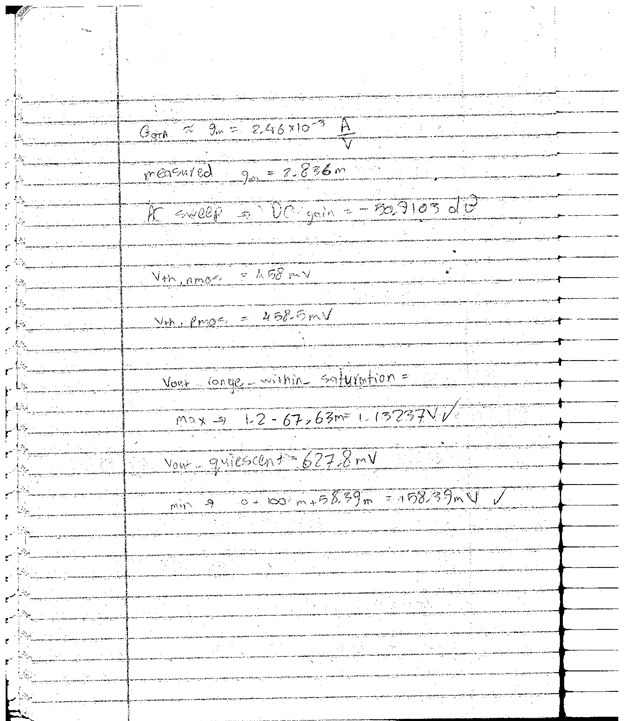 G_OTA ≈ gm = 2.46×10⁻³ A/V
measured gm = 2.836m
AC sweep → DC gain = -30,9103 dB
Vth,nmos = 458 mV
Vth,Pmos = 458.5mV
Vout range within saturation =
max → 1.2 - 67,63m = 1.13237V ✓
Vout quiescent = 627.8mV
min → 0 + 100 m + 58.39m = 158.39mV ✓